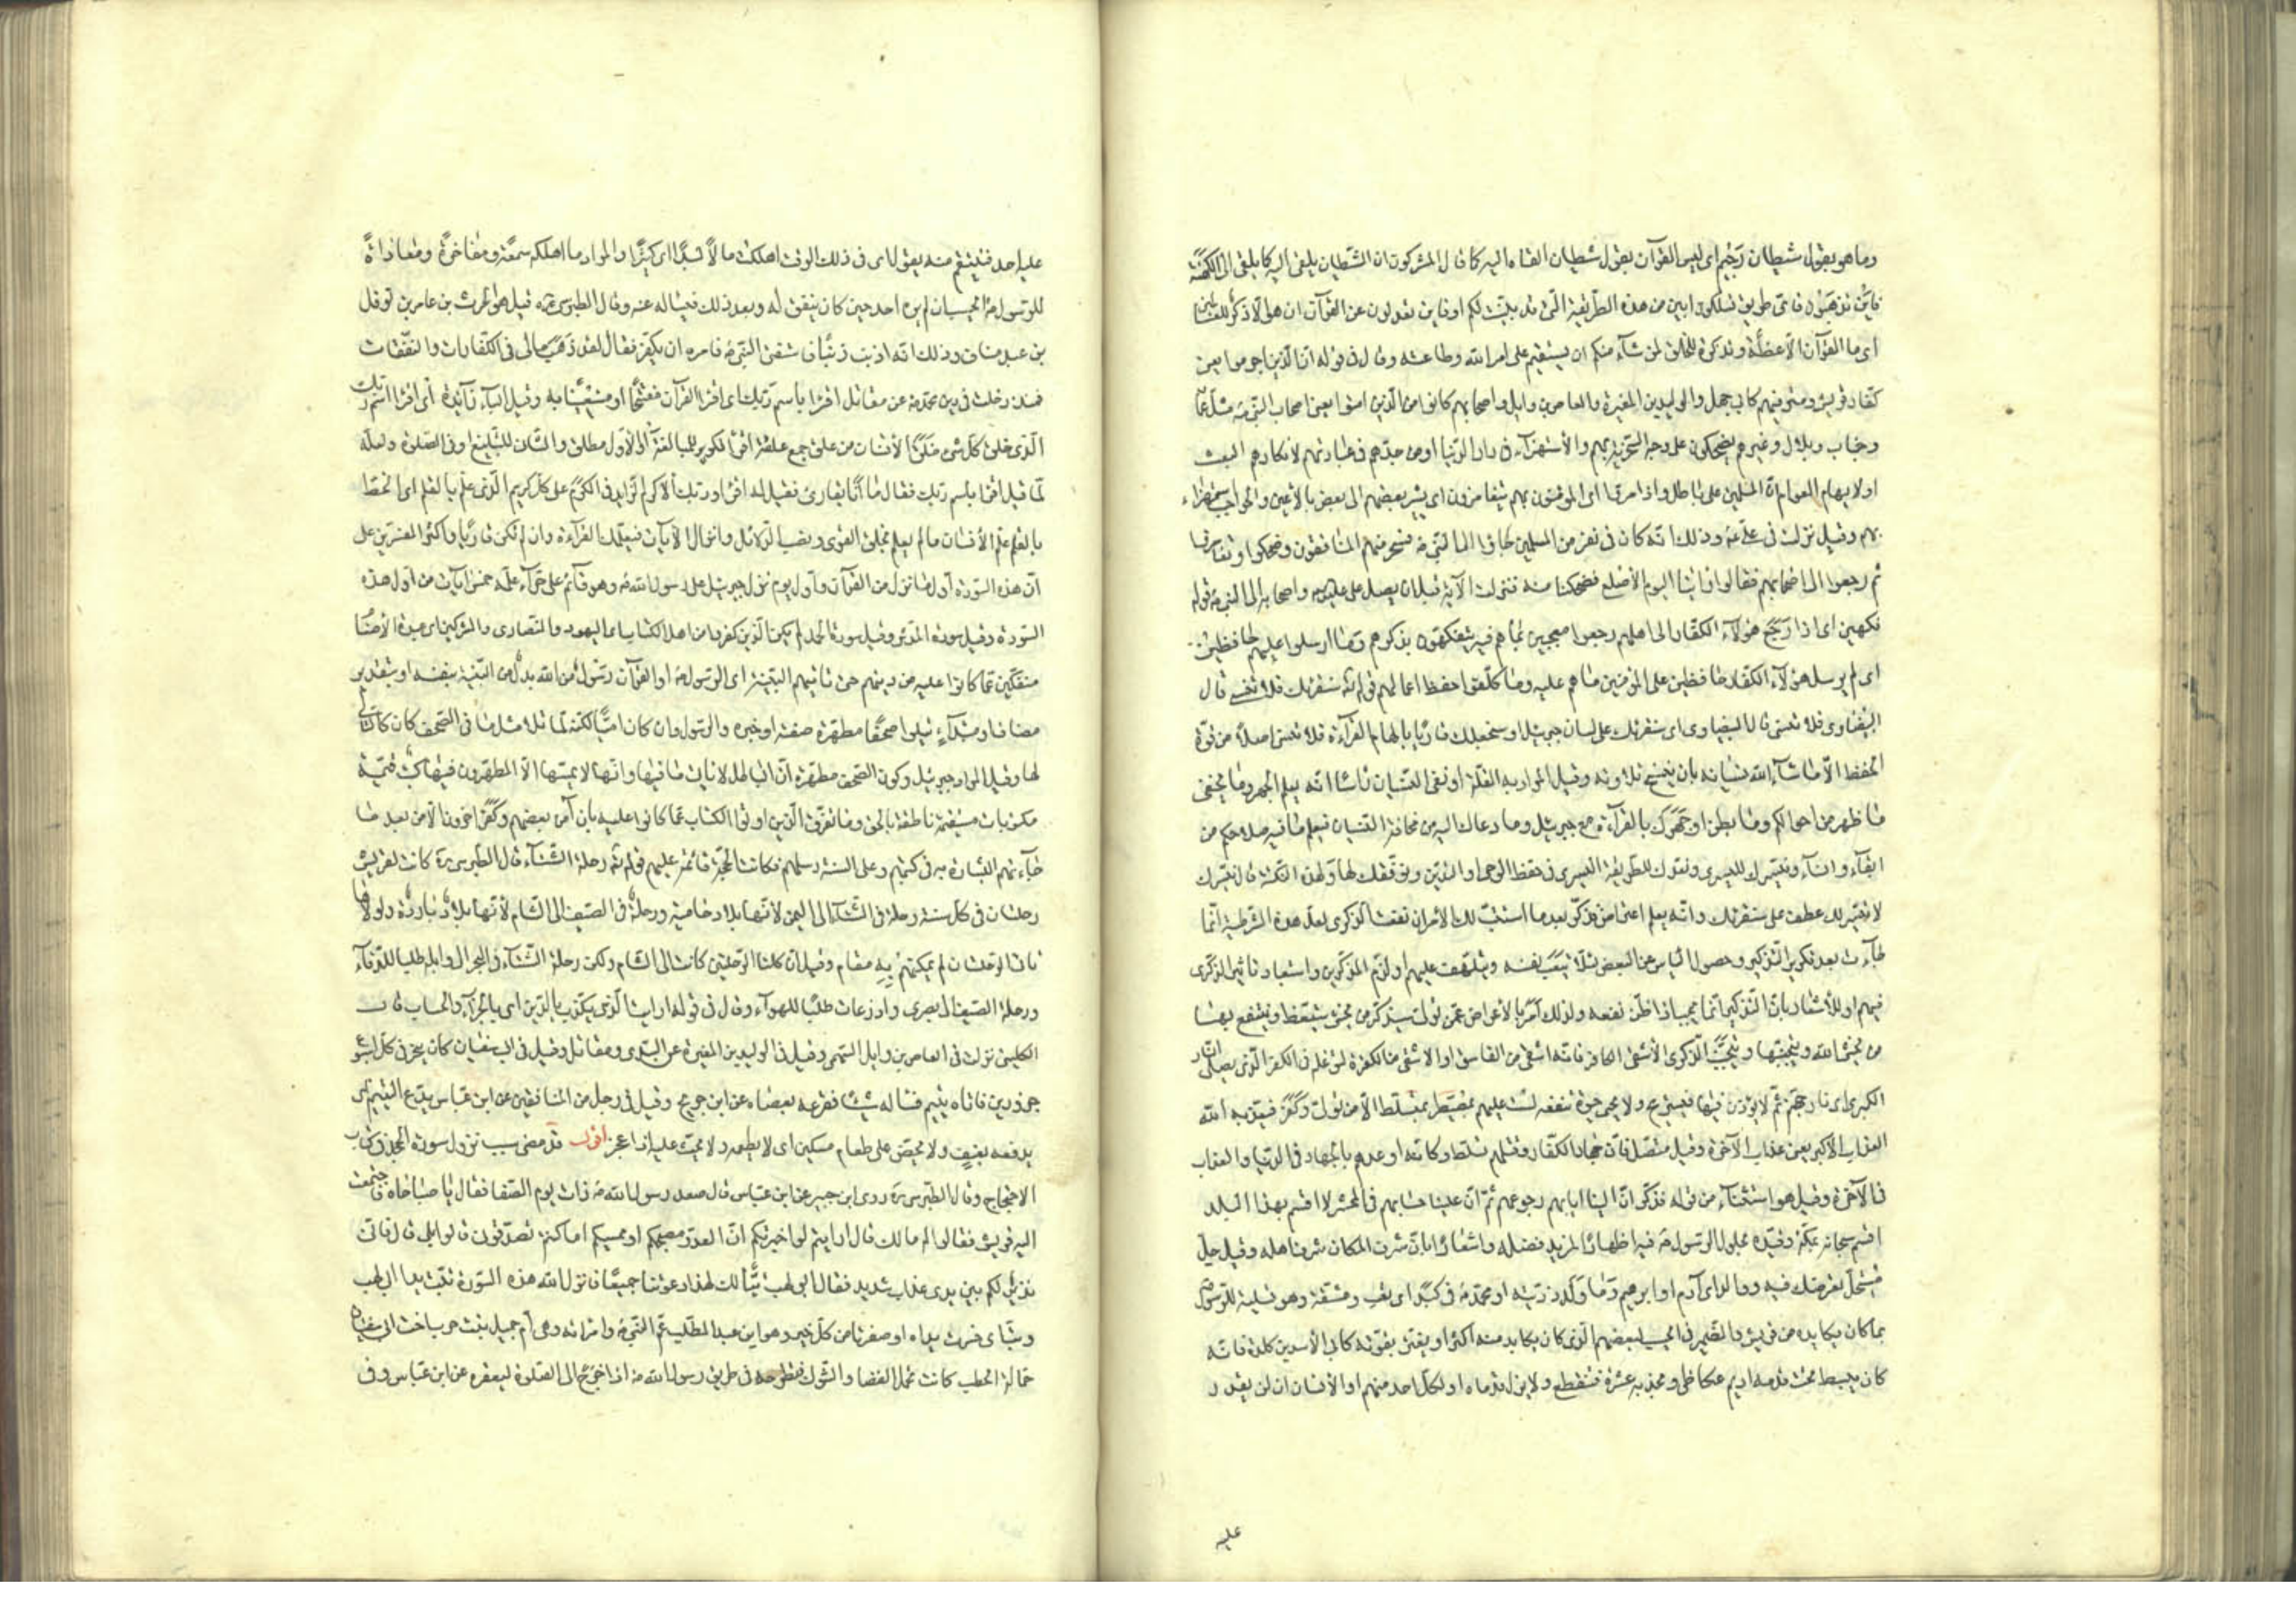 وما هو بقول شيطان رجيم اى ليس القرآن بقول شيطان القاه اليه كما قال المشركون ان الشيطان يلقى اليه كما يلقى الى الكهنة
فاين تذهبون فاى طريق تسلكون ابين من هذه الطريقة التى قد بينت لكم او فاين تعدلون عن القرآن ان هو الا ذكر للعالمين
اى ما القرآن الا عظة وتذكرة للخلق لمن شآء منكم ان يستقيم على امر الله وطاعته وقال فى قوله ان الذين اجرموا يعنى
كفار قريش ومترفيهم كابى جهل والوليد بن المغيرة والعاص بن وايل واصحابهم كانوا من الذين امنوا يعنى اصحاب النبى مثل عمار
وخباب وبلال وغيرهم يضحكون على وجه السخرية بهم والاستهزآء فى دار الدنيا او من جدهم فى عبادتهم لانكارهم البعث
او لايهام العوام ان المسلمين على باطل واذا مروا اى المؤمنون بهم يتغامزون اى يشير بعضهم الى بعض بالاعين والحواجب استهزاء
بهم وقيل نزلت فى على ع وذلك انه كان فى نفر من المسلمين جاؤا الى النبى ص فسخر منهم المنافقون وضحكوا وتغامزوا
ثم رجعوا الى اصحابهم فقالوا راينا اليوم الاصلع فضحكنا منه فنزلت الآية قبل ان يصل على واصحابه الى النبى ص قوله
فكهين اى اذا رجع هؤلآء الكفار الى اهلهم رجعوا معجبين بما هم فيه يتفكهون بذكرهم وما ارسلوا عليهم حافظين
اى لم يرسل هؤلآء الكفار حافظين على المؤمنين ما هم عليه وما كلفوا حفظ اعمالهم قوله سنقرئك فلا تنسى قال
البيضاوى فلا تنسى قال البيضاوى اى سنقرئك على لسان جبرئيل او سنجعلك قارئا بالهام القرآءة فلا تنسى اصلا من قوة
الحفظ الا ما شآء الله نسيانه بان ينسخ تلاوته وقيل المراد به القلة او نفى النسيان راسا انه يعلم الجهر وما يخفى
ما ظهر من احوالكم وما بطن او جهرك بالقرآءة مع جبرئيل وما دعاك اليه من مخافة النسيان فيعلم ما فيه صلاحكم من
ابقآء وانسآء ونيسرك لليسرى ونعدك للطريقة اليسرى فى حفظ الوحى او التدين ونوفقك لها ولهذه النكتة قال نيسرك
لا نيسر لك عطف على سنقرئك وانه يعلم اعتراض فذكر بعد ما استتب لك الامر ان نفعت الذكرى لعل هذه الشرطية انما
جآءت بعد تكرير التذكير وحصول الياس عن البعض لئلا يتعب نفسه ويتلهف عليهم او لذم المذكرين واستبعاد تاثير الذكرى
فيهم او للاشعار بان التذكير انما يجب اذا ظن نفعه ولذلك امر بالاعراض عمن تولى سيذكر من يخشى سيتعظ وينتفع بها
من يخشى الله ويتجنبها ويتجنب الذكرى الاشقى الكافر فانه اشقى من الفاسق او الاشقى من الكفرة لتوغله فى الكفر الذى يصلى النار
الكبرى اى نار جهنم ثم لا يموت فيها فيستريح ولا يحيى حيوة تنفعه لست عليهم بمصيطر بمتسلط الا من تولى وكفر فيعذبه الله
العذاب الاكبر يعنى عذاب الآخرة وقيل متصل فان جهاد الكفار وقتلهم تسلط وكانه اوعدهم بالجهاد فى الدنيا والعذاب
فى الآخرة وقيل هو استثنآء من قوله فذكر ان الينا ايابهم رجوعهم ثم ان علينا حسابهم فى المحشر لا اقسم بهذا البلد
اقسم سبحانه بمكة وقيده بحلول الرسول ص فيه اظهارا لمزيد فضله واشعارا بان شرف المكان بشرف اهله وقيل حل
مستحل تعرضك فيه ووالد اى آدم او ابرهيم وما ولد ذريته او محمد ص فى كبد اى تعب ومشقة وهو تسلية للرسول
بما كان يكابده من قريش والضمير فى ايحسب لبعضهم الذى كان يكابد منه اكثر او يغتر بقوته كابى الاسد بن كلدة فانه
كان يبسط تحت قدمه اديم عكاظى ويجذبه عشرة فينقطع ولا يزل قدماه او لكل احد منهم او الانسان ان لن يقدر
عليه
عليه احد فينتقم منه يقول اى فى ذلك الوقت اهلكت مالا لبدا اى كثيرا والمراد ما اهلكه سمعة ومفاخرة ومعاداة
للرسول ص ايحسب ان لم يره احد حين كان ينفق له وبعد ذلك فيساله عنه وقال الطبرسى ره قيل هو الحرث بن عامر بن نوفل
بن عبد مناف وذلك انه اذنب ذنبا فاستفتى النبى ص فامره ان يكفر فقال لقد ذهب مالى فى الكفارات والنفقات
منذ دخلت فى دين محمد ص عن مقاتل اقرا باسم ربك اى اقرا القرآن مفتتحا او مستعينا به وقيل البآء زآئدة اى اقرا اسم ربك
الذى خلق كل شئ خلق الانسان من علق جمع علقة اقرأ تكرير للمبالغة او الاول مطلق والثانى للتبليغ او فى الصلوة ولعله
لما قيل اقرا باسم ربك فقال ما انا بقارئ فقيل له اقرأ وربك الاكرم الزايد فى الكرم على كل كريم الذى علم بالقلم اى الخط
بالقلم علم الانسان ما لم يعلم بخلق القوى ونصب الدلائل وانزال الآيات فيعلمك القرآءة وان لم تكن قارئا واكثر المفسرين على
ان هذه السورة اول ما نزل من القرآن واول يوم نزل جبرئيل على رسول الله ص وهو قآئم على حرآء علمه خمس آيات من اول هذه
السورة وقيل سورة المدثر وقيل سورة الحمد لم يكن الذين كفروا من اهل الكتاب اى اليهود والنصارى والمشركين اى عبدة الاصنام
منفكين عما كانوا عليه من دينهم حتى تاتيهم البينة اى الرسول ص او القرآن رسول من الله بدل من البينة بنفسه او بتقدير
مضاف او مبتدآء يتلوا صحفا مطهرة صفته او خبره والرسول وان كان اميا لكنه لما تلا مثل ما فى الصحف كان كالتالى
لها وقيل المراد جبرئيل وكون الصحف مطهرة ان الباطل لا ياتى ما فيها وانها لا يمسها الا المطهرون فيها كتب قيمة
مكتوبات مستقيمة ناطقة بالحق وما تفرق الذين اوتوا الكتاب عما كانوا عليه بان آمن بعضهم وكفر اخرون الا من بعد ما
جآءتهم البشارة به فى كتبهم وعلى السنة رسلهم فكانت الحجة قائمة عليهم قوله رحلة الشتآء قال الطبرسى ره كانت لقريش
رحلتان فى كل سنة رحلة فى الشتآء الى اليمن لانها بلاد حامية ورحلة فى الصيف الى الشام لانها بلاد باردة ولولا
هاتان الرحلتان لم يمكنهم به مقام وقيل ان كلتا الرحلتين كانت الى الشام ولكن رحلة الشتآء فى البحر الى وايلة طلبا للدفآء
ورحلة الصيف الى بصرى واذرعات طلبا للهوآء وقال فى قوله ارايت الذى يكذب بالدين اى بالجزآء والحساب قال
الكلبى نزلت فى العاص بن وايل السهمى وقيل فى الوليد بن المغيرة عن السدى ومقاتل وقيل فى ابى سفيان كان ينحر فى كل اسبوع
جزورين فاتاه يتيم فساله شيئا فقرعه بعصاه عن ابن جريج وقيل فى رجل من المنافقين عن ابن عباس يدع اليتيم اى
يدفعه بعنف ولا يحض على طعام مسكين اى لا يطعمه ولا يحث عليه اذا عجز اقول قد مضى سبب نزول سورة الجحد فى كتاب
الاحتجاج وقال الطبرسى ره روى ابن جبير عن ابن عباس قال صعد رسول الله ص ذات يوم الصفا فقال يا صباحاه فاجتمعت
اليه قريش فقالوا له ما لك قال ارايتم لو اخبرتكم ان العدو مصبحكم او ممسيكم اما كنتم تصدقون قالوا بلى قال فانى
نذير لكم بين يدى عذاب شديد فقال ابو لهب تبا لك لهذا دعوتنا جميعا فانزل الله هذه السورة تبت يدا ابى لهب
وتب اى خسرت يداه او صفرتا من كل خير وهو ابن عبد المطلب عم النبى ص وامراته وهى ام جميل بنت حرب اخت ابى سفيان
حمالة الحطب كانت تحمل الغضا والشوك فتطرحه فى طريق رسول الله ص اذا خرج الى الصلوة ليعقره عن ابن عباس وفى